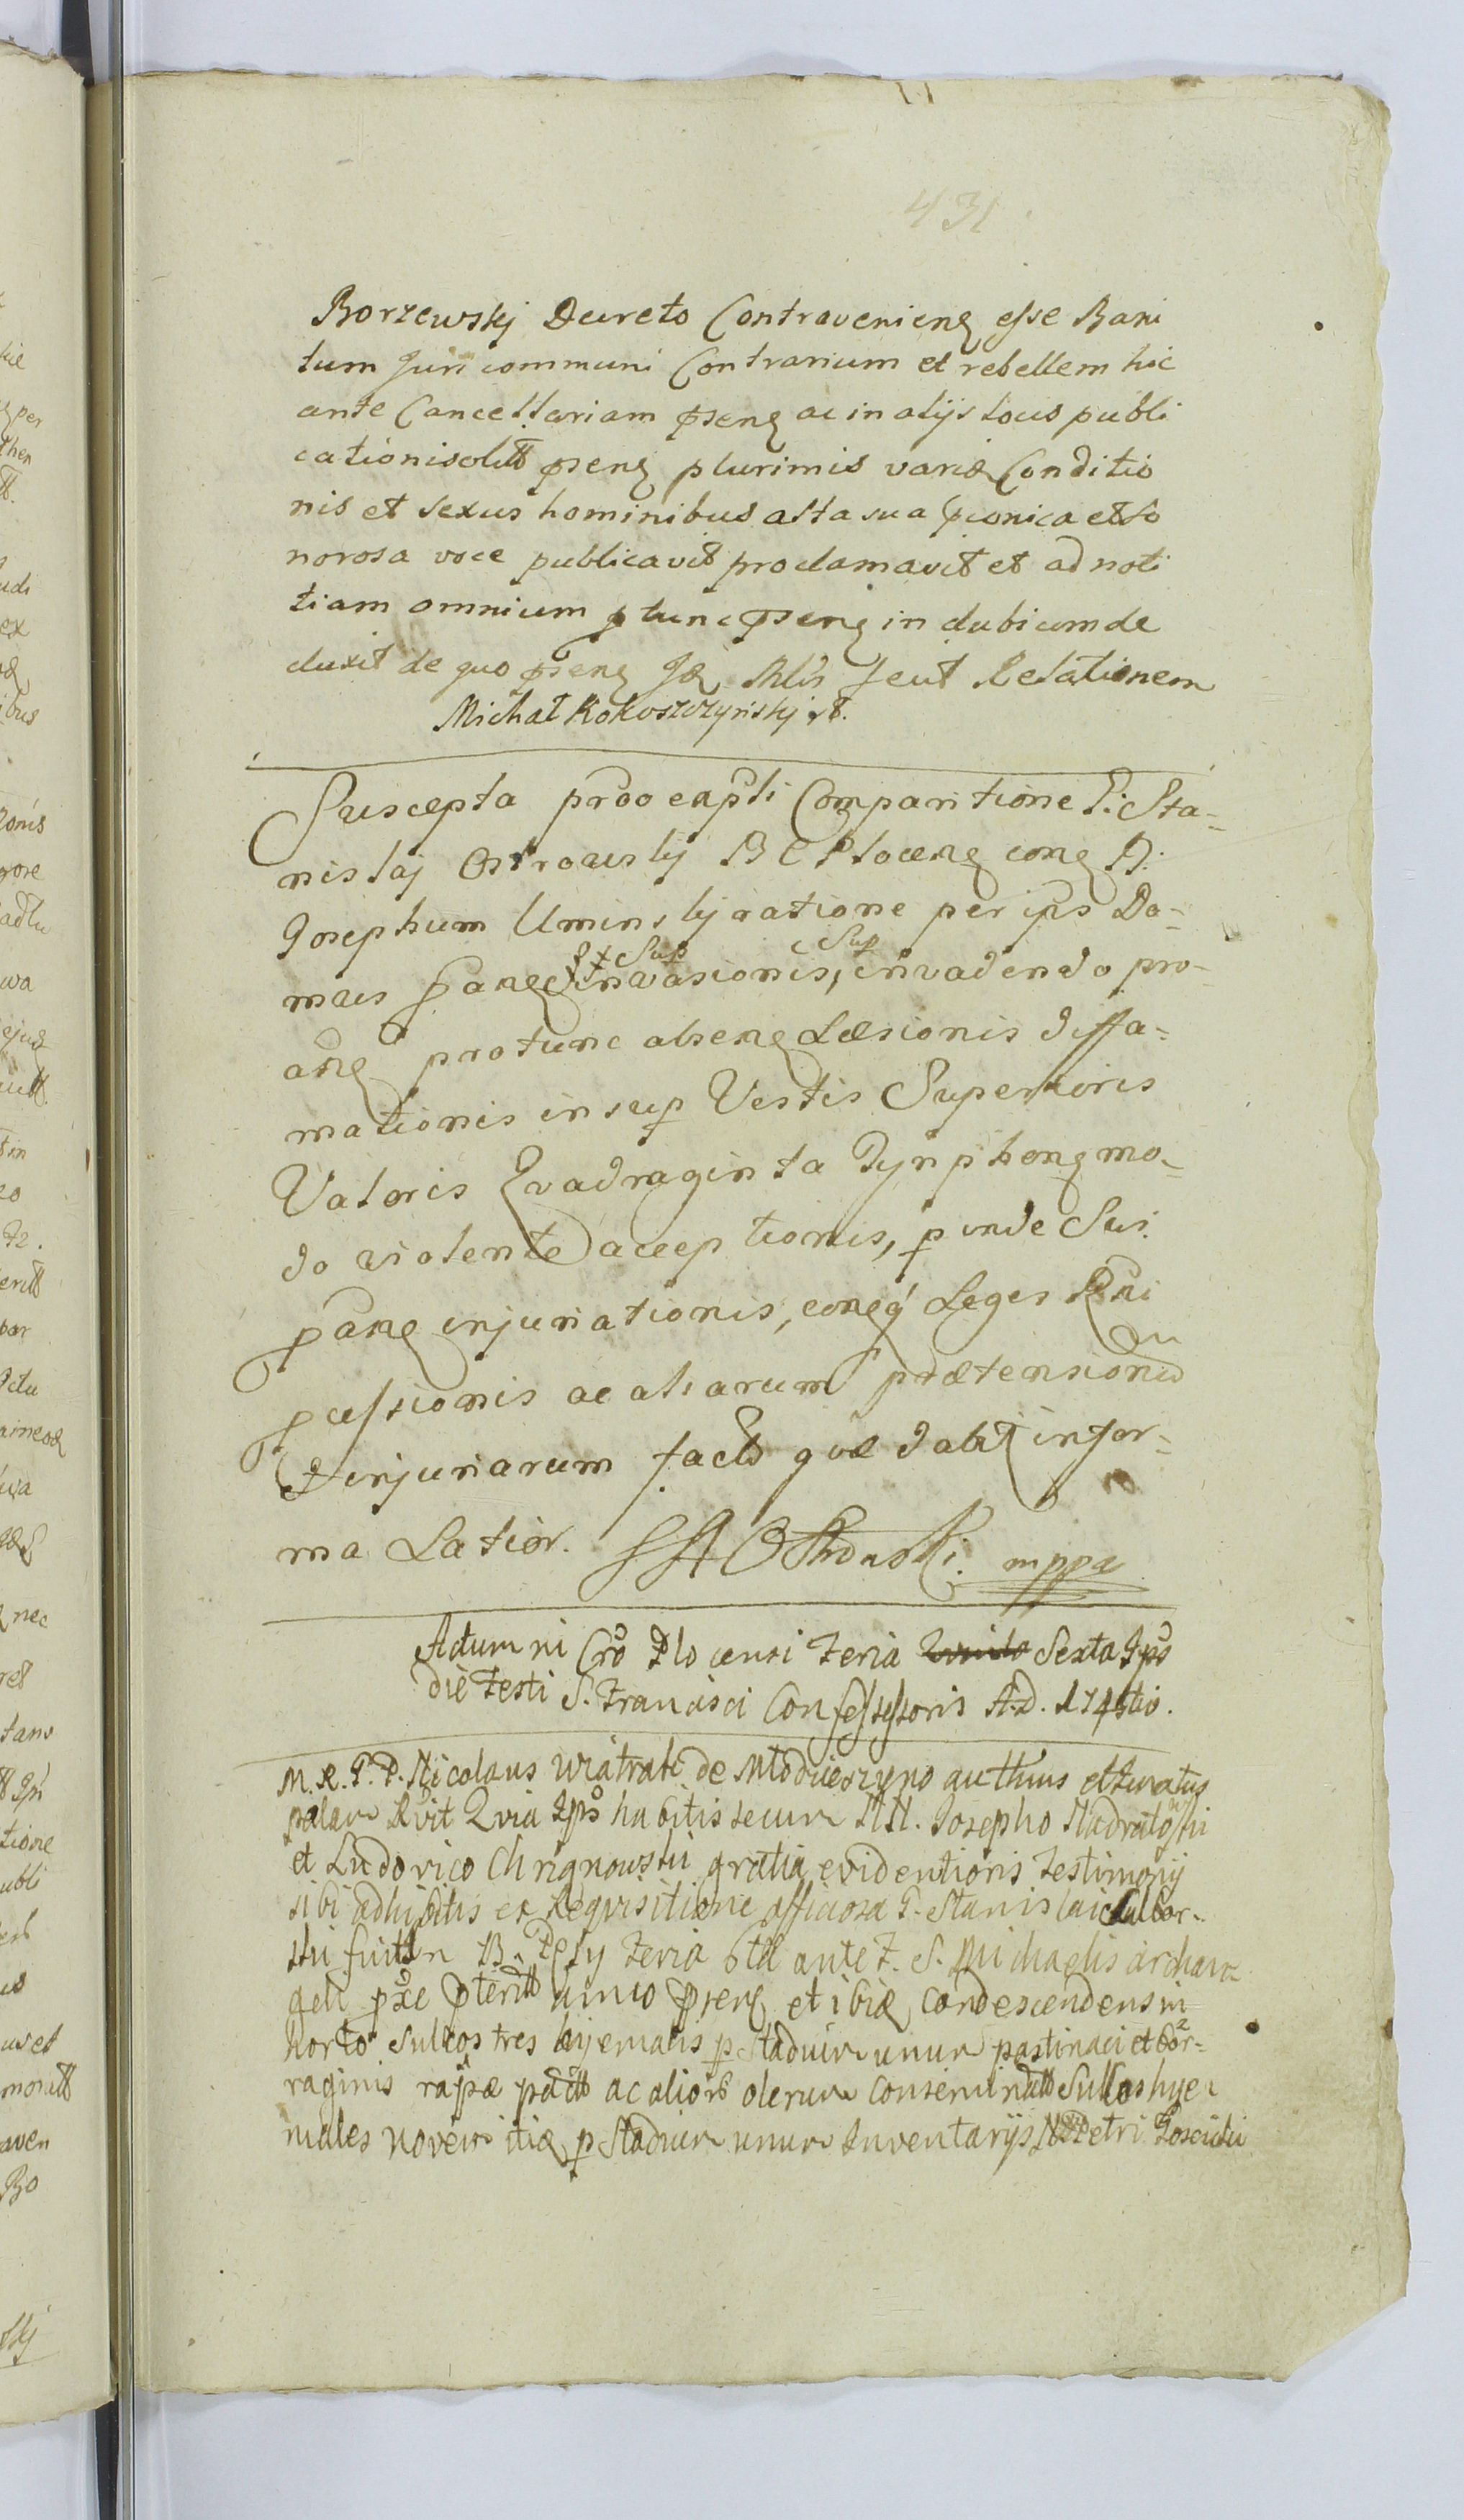 431
Borzewskj Decreto Contraveniens esse Bani
tum Juri communi Contrarium et rebellem hic
ante Cancellariam pseng ac in alijs locis publi
cationi solitt pseng plurimis variæ Conditio
nis et sexus hominibus alta sua pconica et so
norosa voce publicavit proclamavit et ad noti
tiam omnium p tunc pseng in dubium de
duxit de quo pseng Relationem
Michał Kokoszczyńskj
Suscepta Comparitione Sta-
nislaj Ostrowskj B C Ploceng cong D:
Josephum Uminskj ratione per ips Do-
mus Invasionis, invadendo pro-
Sup Sup
ang protunc abseng Læsionis diffa-
mationis insup Vestis Superioris
Valoris Quadraginta Tynphong mo-
do violente acceptionis, p inde Sui
pang injuriationis, Leges Rni
pcessionis ac aliarum prætensionu
et injuriarum facto quæ dabit infor-
ma Latior. mppa
Actum ni Cro Plocensi Feria Sexta Ipso
die Festi S. Francisci Confessoris A.D. 174
M. R. P. P. Nicolaus Wiatrak de Młodzieszyno authus et Juratus
palam Rvit Quia Ipso habitis secum NN. Josepho
et Ludovico Chrignowski gratia evidentioris Testimonij
sibi adhibitis ex Requisitione officiosa G. Stanislai
ski fuit in B. Feria 6ta ante F. S. Michaelis archan
geli pxe pteritt anno pseng et ibiq condescendens in
horto Sulcos tres hyemalis p Stadium unum pastinaci et bor-
raginis rapæ ac alior olerum conseminatt Sulcos hye
males novem itiq p Stadium unum Inventarijs Petri